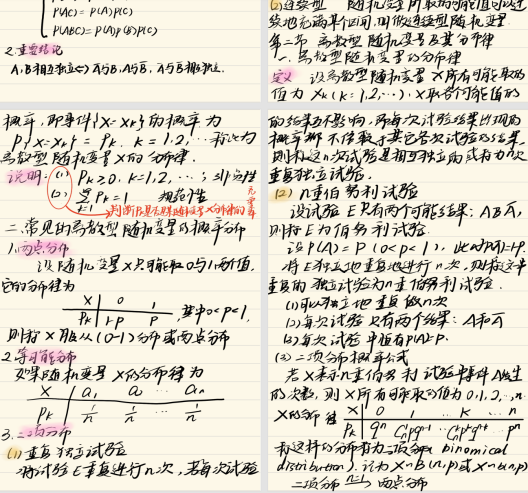 P(AC) = P(A)P(C)
P(ABC) = P(A)P(B)P(C)
2.重要结论
A,B相互独立⇔A与B̄,Ā与B,Ā与B̄相互独立.
概率,即事件{X=xₖ}的概率为
P{X=xₖ}=Pₖ, k=1,2,…称此为
离散型随机变量X的分布律.
说明: (1) Pₖ≥0, k=1,2,…; 非负性
(2) ∑Pₖ=1 规范性
二.常见的离散型随机变量的概率分布
1.两点分布
设随机变量X只可能取0与1两个值,
它的分布律为
X 0 1
Pₖ 1-P P ,其中0<P<1,
则称X服从(0-1)分布或两点分布
2.等可能分布
如果随机变量X的分布律为
X a₁ a₂ … aₙ
Pₖ 1/n 1/n … 1/n
3.二项分布
(1)重复独立试验
将试验E重复进行n次,若每次试验
(2)连续型 随机变量所取的可能值可以连
续地充满某个区间,叫做连续型随机变量
第二节 离散型随机变量及其分布律
一.离散型随机变量的分布律
定义 设离散型随机变量X所有可能取的
值为xₖ(k=1,2,…),X取各个可能值的
的结果互不影响,即每次试验结果出现的
概率都不依赖于其它各次试验的结果,
则称这n次试验是相互独立的或称为n次
重复独立试验.
(2) n重伯努利试验
设试验E只有两个可能结果:A及Ā,
则称E为伯努利试验.
设P(A)=P(0<P<1),此时P(Ā)=1-P.
将E独立地重复地进行n次,则称这一串
重复的独立试验为n重伯努利试验.
(1)可以独立地重复做n次
(2)每次试验只有两个结果:A和Ā
(3)二项分布概率公式
若X表示n重伯努利试验中事件A发生
的次数,则X所有可能取的值为0,1,2,…,n.
X的分布律 X 0 1 … k … n
Pₖ qⁿ Cₙ¹pqⁿ⁻¹ … Cₙᵏpᵏqⁿ⁻ᵏ … pⁿ
称这样的分布为二项分布(binomial
distribution).记为X~B(n,p)或X~b(n,p)
二项分布 n=1 两点分布